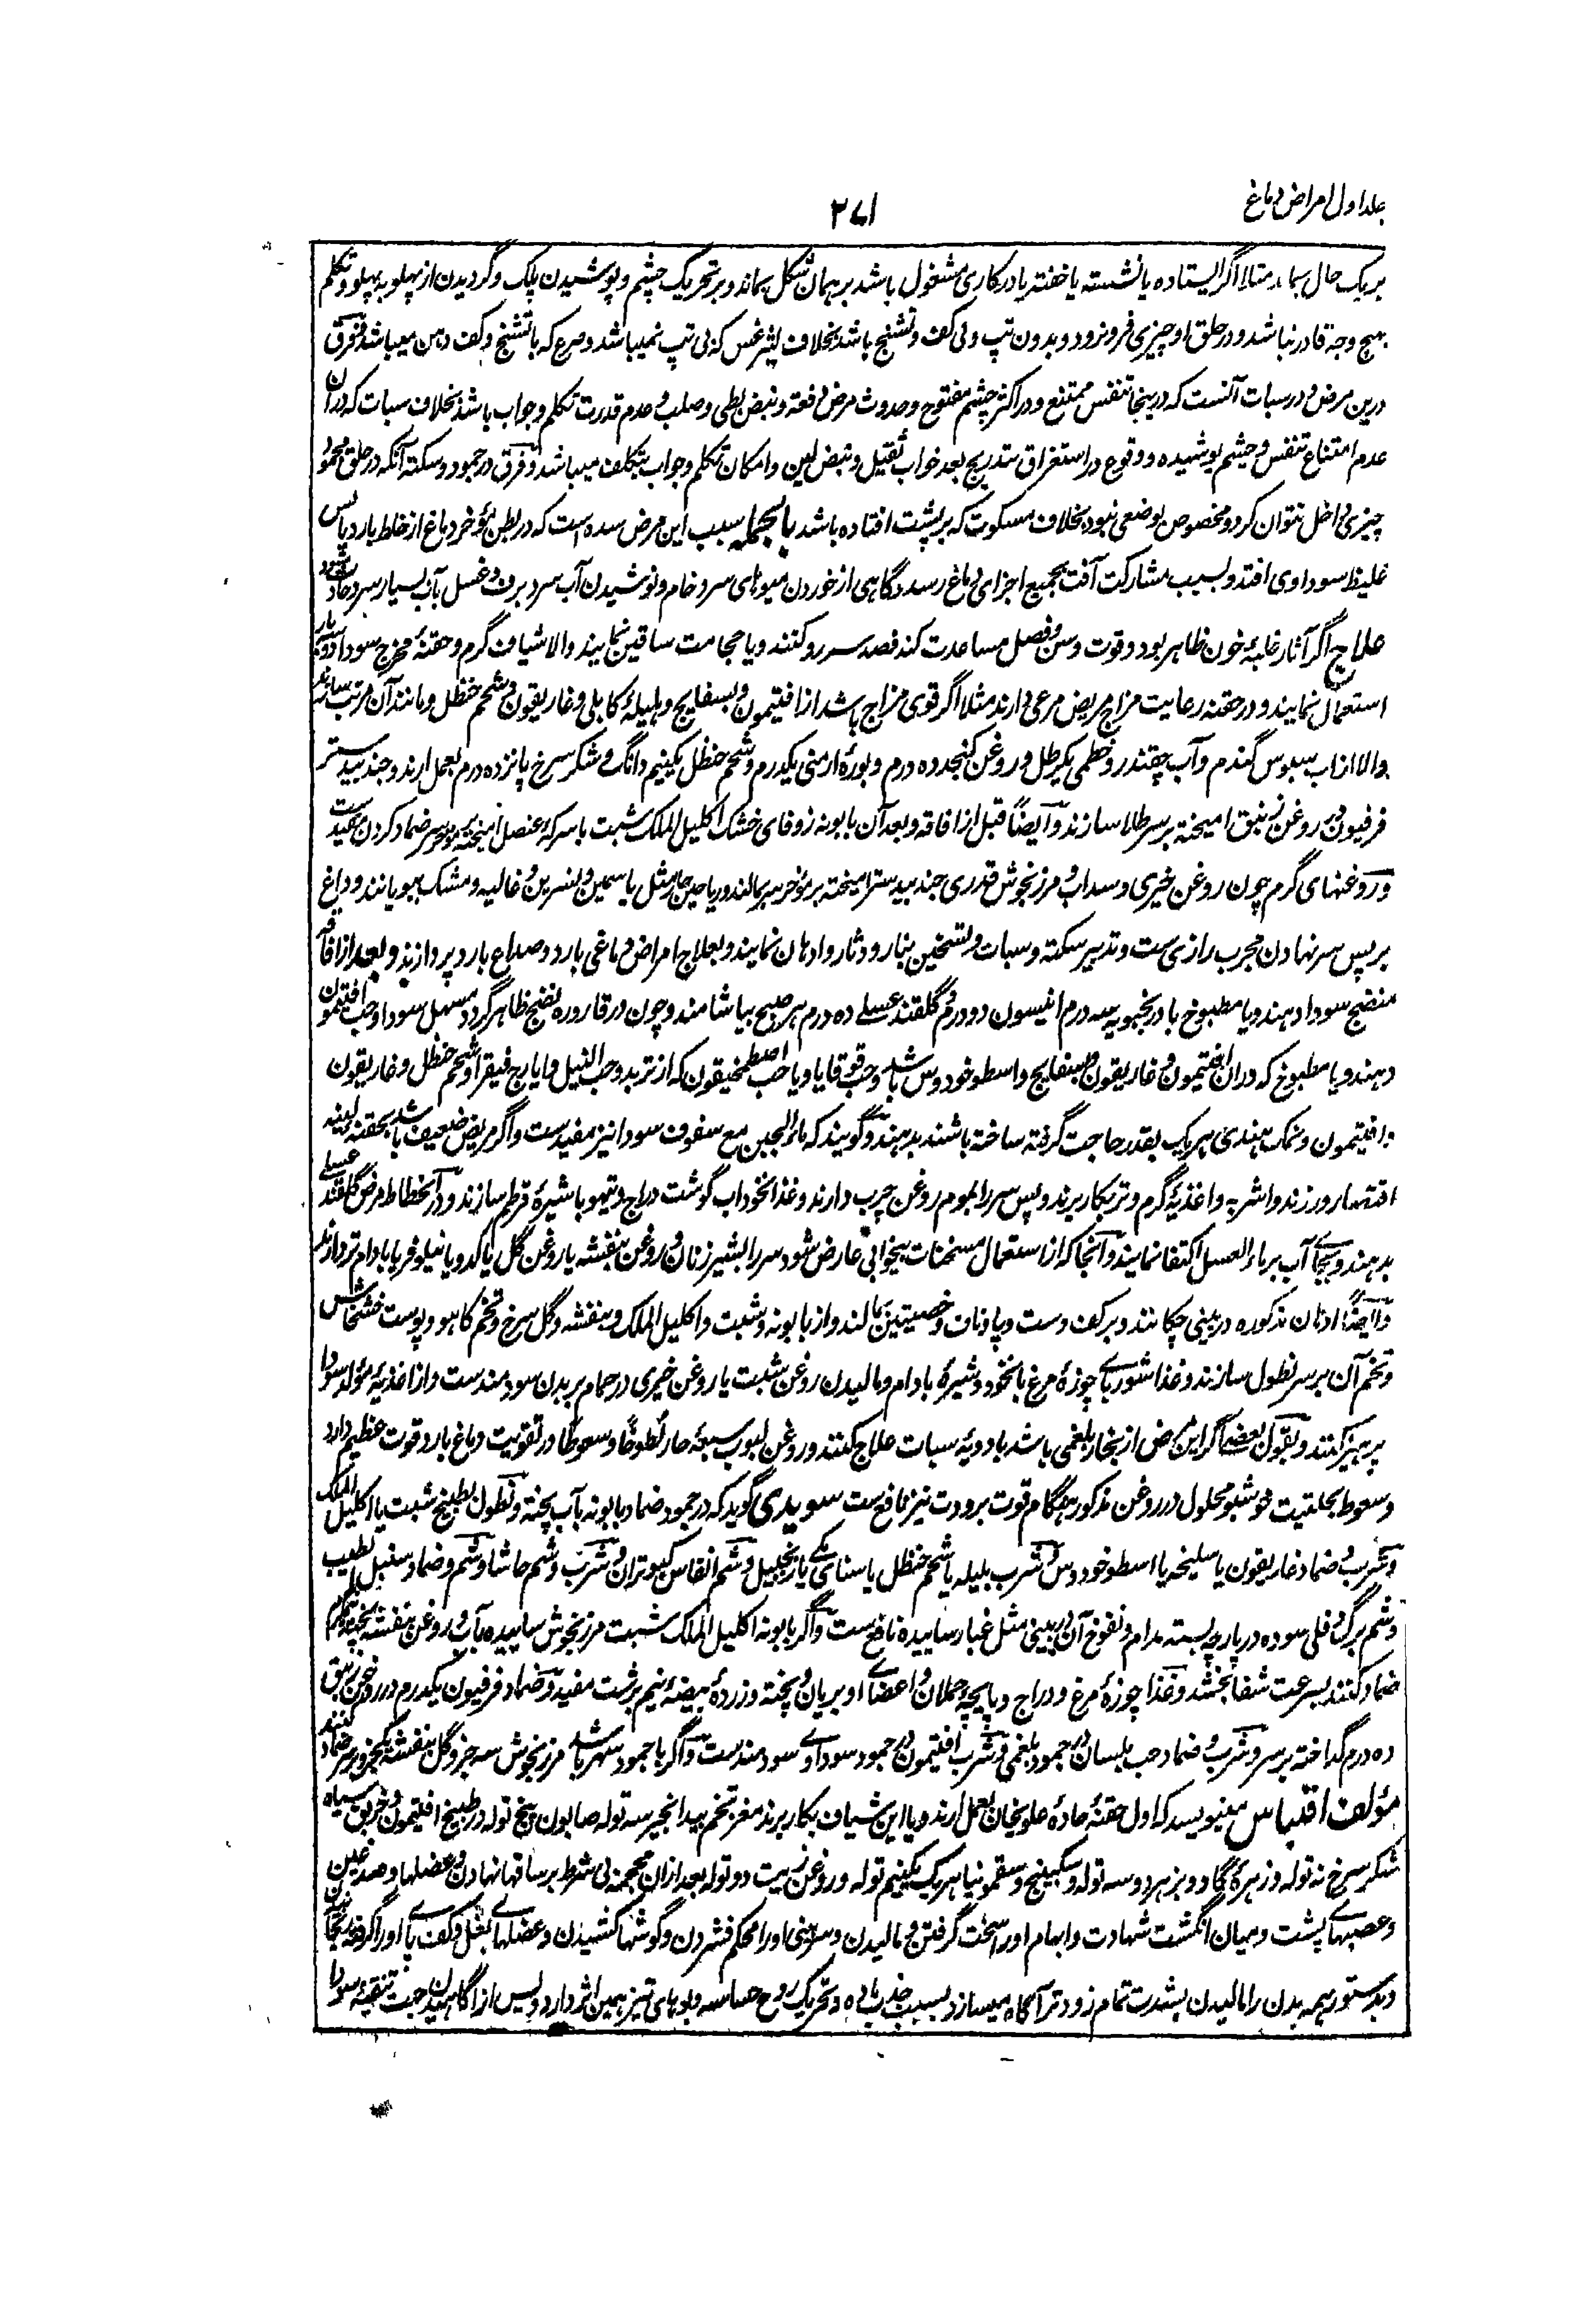 جلد اول امراض دماغ
۲۷۱
بریک حال بماند مثلا اگر ایستاده یا نشسته یا خفته یا در کاری مشغول باشد بر همان شکل بماند و بر تحریک چشم و پوشیدن پلک و گردیدن از پهلو به پهلو و تکلم
بهیچ وجه قادر نباشد و در حلق او چیزی فرو نرود و بدون تپ و بی کف و تشنج باشد بخلاف لیثرغس که بی تپ نمیباشد و صرع که با تشنج و کف دهن میباشد و فرق
درین مرض و در سبات آنست که درینجا تنفس ممتنع و در اکثر چشم مفتوح و حدوث مرض دفعة و نبض بطی و صلب و عدم قدرت تکلم و جواب باشد بخلاف سبات که دران
عدم امتناع تنفس و چشم پوشیده و وقوع در استغراق بتدریج بعد خواب ثقیل و نبض لین و امکان تکلم و جواب بتکلف میباشد و فرق در جمود و سکته آنکه در حلق مجمود
چیزی داخل نتوان کرد و مخصوص بوضعی نبود بخلاف مسکوت که بر پشت افتاده باشد بالجمله سبب این مرض سده است که در بطن مؤخر دماغ از خلط بارد یابس
غلیظ سوداوی افتد و بسبب مشارکت آفت بجمیع اجزای دماغ رسد و گاهی از خوردن میوهای سرد خام و نوشیدن آب سرد برف و غسل بآب بسیار سرد حادث شود
علاج اگر آثار غلبهٔ خون ظاهر بود و قوت و سن و فصل مساعدت کند فصد سررو کنند و یا حجامت ساقین نمایند والا شیاف گرم و حقنهٔ مخرج سودا
استعمال نمایند و در حقنه رعایت مزاج مریض مرعی دارند مثلا اگر قوی مزاج باشد از افتیمون و بسفایج و هلیلهٔ کابلی و غاریقون و شحم حنظل و مانند آن مرتب سازند
والا از آب سبوس گندم و آب چقندر و خطمی یکرطل و روغن کنجد ده درم و بورهٔ ارمنی یکدرم و شحم حنظل یکنیم دانگ و شکر سرخ پانزده درم بعمل آرند و جندبیدستر
فرفیون در روغن زنبق آمیخته بر سر طلا سازند و ایضاً قبل از افاقه و بعد آن بابونه زوفای خشک اکلیل الملک شبت با سرکهٔ عنصل آمیخته بر مؤخر سر ضماد کردن مفیدست
و روغنهای گرم چون روغن خیری و سداب و مرزنجوش قدری جندبیدستر آمیخته بر مؤخر سر بمالند و ریاحین حار مثل یاسمین و نسرین و غالیه و مشک ببویانند و داغ
بر پس سر نهادن مجرب رازی ست و تدبیر سکته و سبات و تسخین بنار و دثار و ادهان نمایند و بعلاج امراض دماغی بارد و صداع بارد پردازند و بعد از افاقه
منضج سودا دهند یا مطبوخ بادرنجبویه سه درم انیسون دو درم و گلقند عسلی ده درم هر صبح بیاشامند و چون در قاروره نضج ظاهر گردد مسهل سودا و حب افتیمون
دهند و یا مطبوخ که دران افتیمون و غاریقون و بسفایج و اسطوخودوس باشد و حب قوقایا و یا حب اصطمخیقون که از تربد و حب النیل و ایارج فیقرا و شحم حنظل و غاریقون
و افتیمون و نمک هندی هر یک بقدر حاجت گرفته ساخته باشند بدهند و گویند که ماء الجبن مع سفوف سودا نیز مفیدست و اگر مریض ضعیف باشد بحقنه لینه
اقتصار ورزند و اشربه و اغذیهٔ گرم و تر بکار برند و پس سر را بموم روغن چرب دارند و غذا نخوداب گوشت دراج و تیهو با شیرهٔ قرطم سازند و در انحطاط مرض گلقند عسلی
بدهند و بجای آب بر ماء العسل اکتفا نمایند و آنجا که از استعمال مسخنات بیخوابی عارض شود سر را بشیر زنان و روغن بنفشه یا روغن گل یا کدو یا نیلوفر یا بادام تر دارند
و ایضاً ادهان مذکوره در بینی چکانند و بر کف دست و پا و ناف و خصیتین بمالند و از بابونه و شبت و اکلیل الملک و بنفشه و گل سرخ و تخم کاهو و پوست خشخاش
و تخم آن بر سر نطول سازند و غذا شوربای چوزهٔ مرغ با نخود و شیرهٔ بادام و مالیدن روغن شبت یا روغن خیری در حمام بر بدن سودمندست و از اغذیهٔ مولد سودا
پرهیز کنند و بقول بعضی اگر این مرض از بخار بلغمی باشد بادویهٔ سبات علاج کنند و روغن لبوب سبعهٔ حار لطوخاً و سعوطاً در تقویت دماغ بارد قوت عظیم دارد
و سعوط بحلتیت خوشبو محلول در روغن مذکور هنگام قوت برودت نیز نافع ست سویدی گوید که در جمود ضماد بابونه بآب پخته و نطول بطبیخ شبت یا اکلیل الملک
و شرب و ضماد غاریقون یا سلیخه یا اسطوخودوس و شرب بلیله یا شحم حنظل یا سنای مکی یا زنجبیل و شم انفاس کبوتران و شرب و شم حاشا و شم و ضماد سنبل الطیب
و شم برگ دفلی سوده در پارچه بسته مدام و نفوخ آن در بینی مثل غبار ساییده نافع ست و اگر بابونه اکلیل الملک شبت مرزنجوش ساییده بآب و روغن بنفشه پخته نیمگرم
ضماد کنند بسرعت شفا بخشد و غذا چوزهٔ مرغ و دراج و پاچهٔ حملان و اعضای او بریان و پخته و زردهٔ بیضهٔ نیم برشت مفید و ضماد فرفیون یکدرم در روغن زنبق
ده درم گداخته بر سر و شرب و ضماد حب بلسان در جمود بلغمی و شرب افتیمون در جمود سوداوی سودمندست و اگر با جمود سهر باشد مرزنجوش سه جزو گل بنفشه یکجزو بر سر ضماد کنند
مؤلف اقتباس مینویسد که اول حقنهٔ حادهٔ علویخان بعمل آرند و یا این شیاف بکار برند مغز تخم بیدانجیر سه توله صابون پنج توله در طبیخ افتیمون و خربق سیاه
شکر سرخ نه توله و زهرهٔ گاو و بز هر دو سه توله و سکبینج و سقمونیا هر یک یکنیم توله و روغن زیت دو توله بعد ازان محجمه بی شرط بر ساقها نهادن و عضلها و صدغین
و عصبهای پشت و میان انگشت شهادت و ابهام او را سخت گرفتن و مالیدن و سر بینی او را محکم فشردن و گوشها کشیدن و عضلهای بغل و کف پای او را گرفته
و بدستور همه بدن را مالیدن بشدت تمام زودتر آگاه میسازد بسبب جذب ماده و تحریک روح حساسه و بوهای تیز همین اثر دارد و پس از آگاهیدن جهت تنقیهٔ سودا